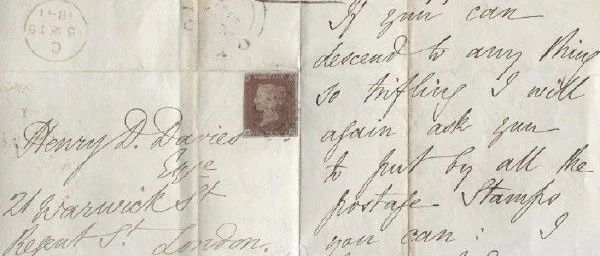 C
1841
POSTAGE
Henry D. Davies
Esqre
21 Warwick St
Regent St. London.
If you can
descend to any thing
so trifling I will
again ask you
to put by all the
postage Stamps
you can: I